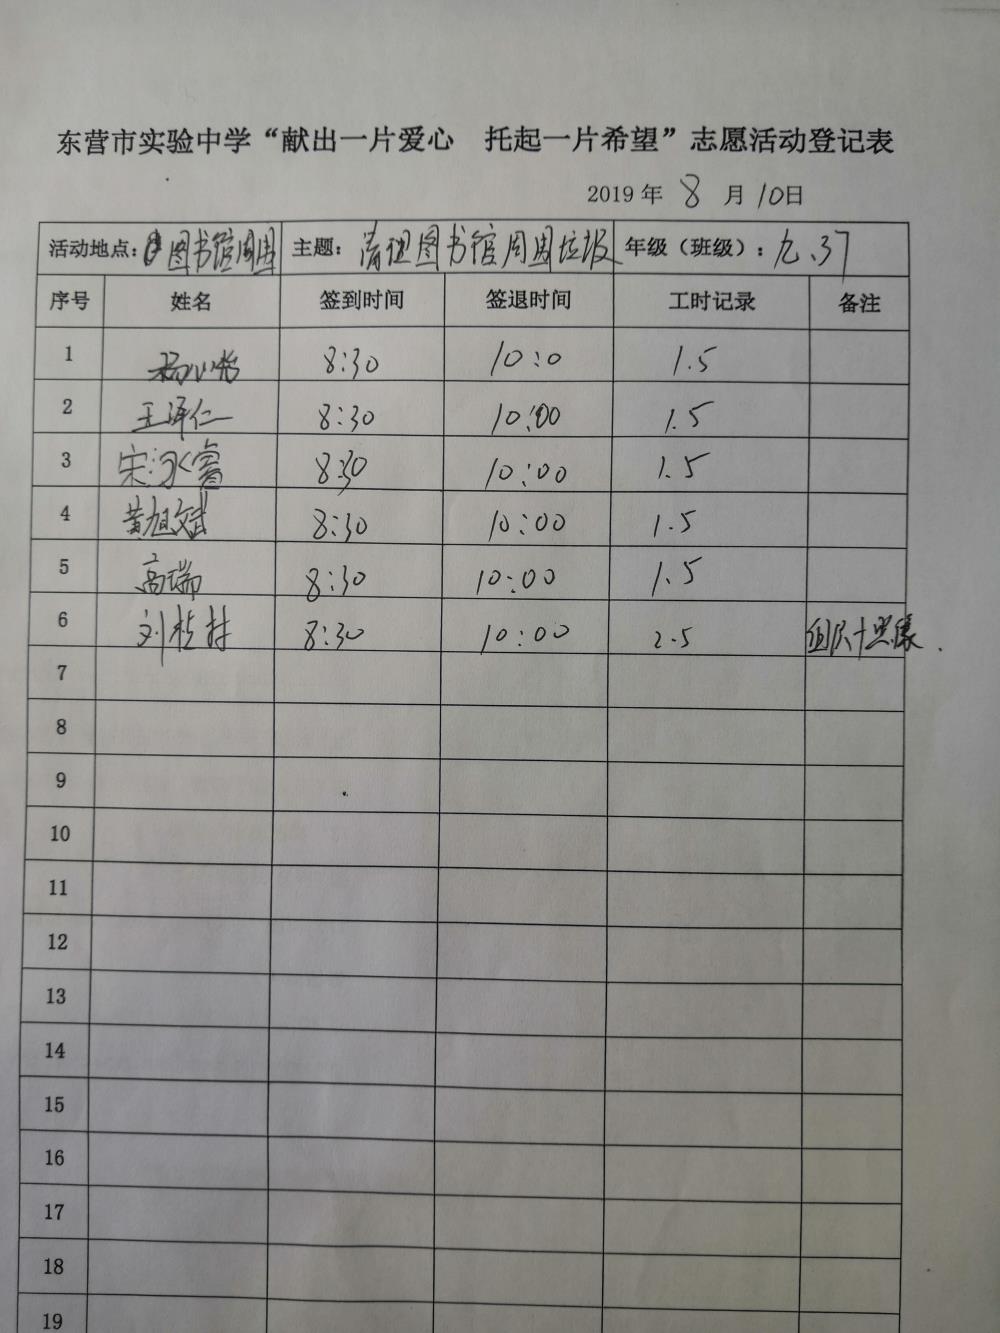 东营市实验中学“献出一片爱心 托起一片希望”志愿活动登记表
2019 年 8 月 10日
活动地点：图书馆周围 主题：清理图书馆周围垃圾 年级（班级）：九.37
序号 姓名 签到时间 签退时间 工时记录 备注
1 8:30 10:0 1.5
2 王泽仁 8:30 10:00 1.5
3 宋泳睿 8:30 10:00 1.5
4 黄旭斌 8:30 10:00 1.5
5 高瑞 8:30 10:00 1.5
6 刘桂林 8:30 10:00 2.5 组织+照像.
7
8
9
10
11
12
13
14
15
16
17
18
19